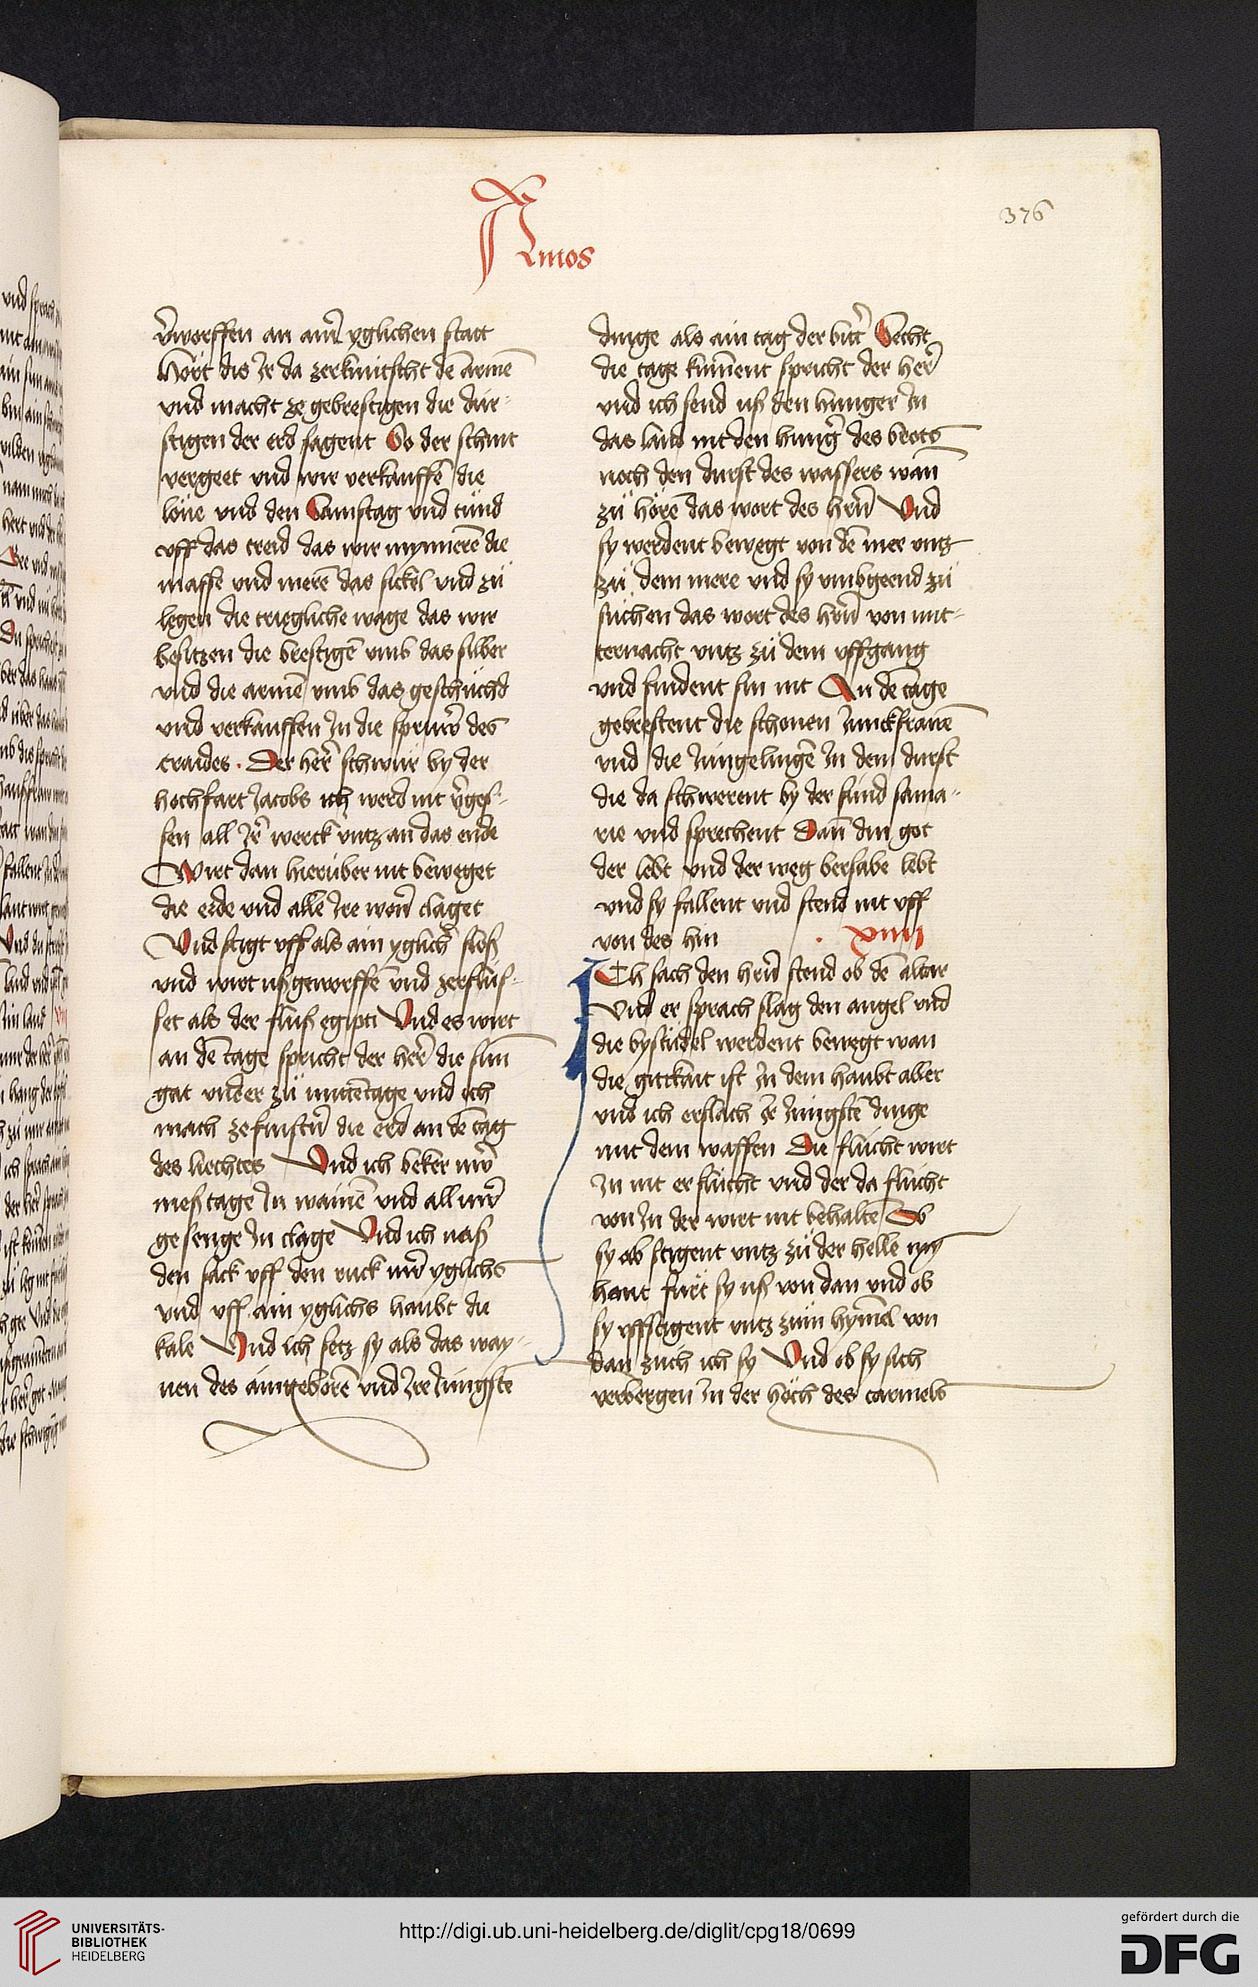 Amos
376
v̄worffen an aīr yglichen statt
Hört dis Ir da zerknütscht dē armē
vnd macht ze gebrestigen die dür-
ftigen der erd sagent So der schnit
vergeet vnd wir verkauffē die
löne vnd den Samstag vnd tünd
vff das treid das wir mynnerē die
masse vnd merē das sickel vnd zü
legen die triegliche wage das wir
besitzen die brestigē vmb das silber
vnd die armē vmb das geschüchd
vnd verkauffen In die sprüw̄r des
traides . Der her̄ schwür by der
hochfart Jacobs ich werd nit v̄ges-
sen all Ir̄ werck vntz an das ende
Wirt dan hierüber nit beweget
die erde vnd alle Ire won̄ claget
Vnd stigt vff als ain yglich̄ flos
vnd wirt ußgeworffē vnd zerflüs-
set als der fluß egipti Vnd es wirt
an dē tage spricht der her̄ die sun̄
gat vnder zü mittētage vnd ich
mach ze finstr̄ die erd an dē tag
des liechtes Vnd ich beker uw̄r
meß tage In wainē vnd all uw̄r
gesenge In clage Vnd ich naß
den sack vff den ruck uw̄r yglichs
vnd vff ain yglichs haubt die
kale Vnd ich setz sy als das way-
nen des aingeborē vnd Ire Jüngste
dinge als ain tag der bitt̄ Secht
die tage kument spricht der her̄
vnd ich send uß den hunger In
das land nit den hunḡ des brots
noch den durst des wassers wan
zü hörē das wort des hrn̄ Vnd
sy werdent bewegt von dē mer vntz
zü dem mere vnd sy vmbgeend zü
suchen das wort des hrn̄ von mit-
ternacht vntz zü dem vffgang
vnd findent sin nit An dē tage
gebrestent die schonen Junckfrauē
vnd die Jüngelingē In dem durst
die da schwerent by der sünd sama-
rie vnd sprechent Dan̄ din got
der lebt vnd der weg bersabe lebt
vnd sy fallent vnd stend nit vff
von des hin
Ich sach den hrn̄ stend ob dē altar
Vnd er sprach slag den angel vnd
die bystüdel werdent bewegt wan
die gitkait ist In dem haubt aller
vnd ich erslach Ir Jüngstē dinge
mit dem waffen Die flücht wirt
In nit er flücht vnd der da flücht
von In der wirt nit behaltē Ob
sy ab stigent vntz zü der helle my
hant fürt sy uß von dan vnd ob
sy vffstigent vntz zum hymel von
dan züch ich sy Vnd ob sy sich
verbergen In der höch des carmels
UNIVERSITÄTS-
BIBLIOTHEK
HEIDELBERG
http://digi.ub.uni-heidelberg.de/diglit/cpg18/0699
gefördert durch die
DFG